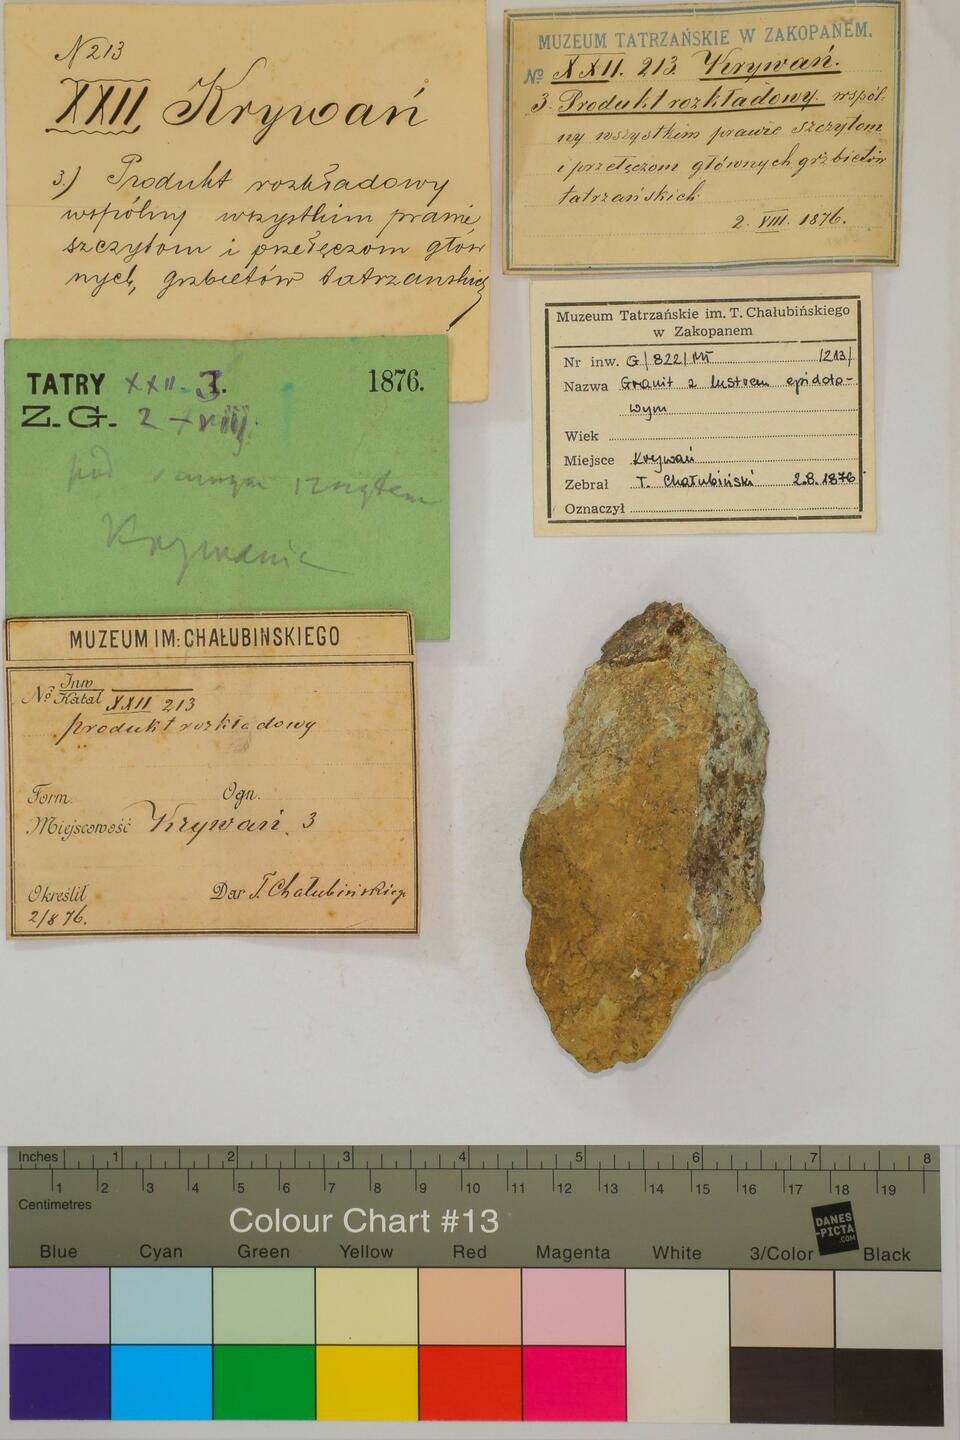 N 213
XXII Krywań
3.) Produkt rozkładowy
wspólny wszystkim prawie
szczytom i przełęczom głów
nych, grzbietów tatrzańskich
MUZEUM TATRZAŃSKIE W ZAKOPANEM.
№ XXII. 213. Krywań.
3. Produkt rozkładowy wspól-
ny wszystkim prawie szczytom
i przełęczom głównych grzbietów
tatrzańskich
2. VIII. 1876.
Muzeum Tatrzańskie im. T. Chałubińskiego
w Zakopanem
Nr inw. G/822/MT /213/
Nazwa Granit z lustrem epidoto-
wym
Wiek
Miejsce Krywań
Zebrał T. Chałubiński 2.8.1876
Oznaczył
TATRY XXII. 3. 1876.
Z. G. 2 VIII.
pod samym szczytem
Krywania
MUZEUM IM: CHAŁUBINSKIEGO
№ Inw
Katal XXII 213
produkt rozkładowy
Form. Ogn.
Miejscowość Krywań. 3
Określił Dar T. Chałubińskiego
2/8 76.
Inches 1 2 3 4 5 6 7 8
1 2 3 4 5 6 7 8 9 10 11 12 13 14 15 16 17 18 19
Centimetres
Colour Chart #13
DANES
-PICTA
.COM
Blue Cyan Green Yellow Red Magenta White 3/Color Black